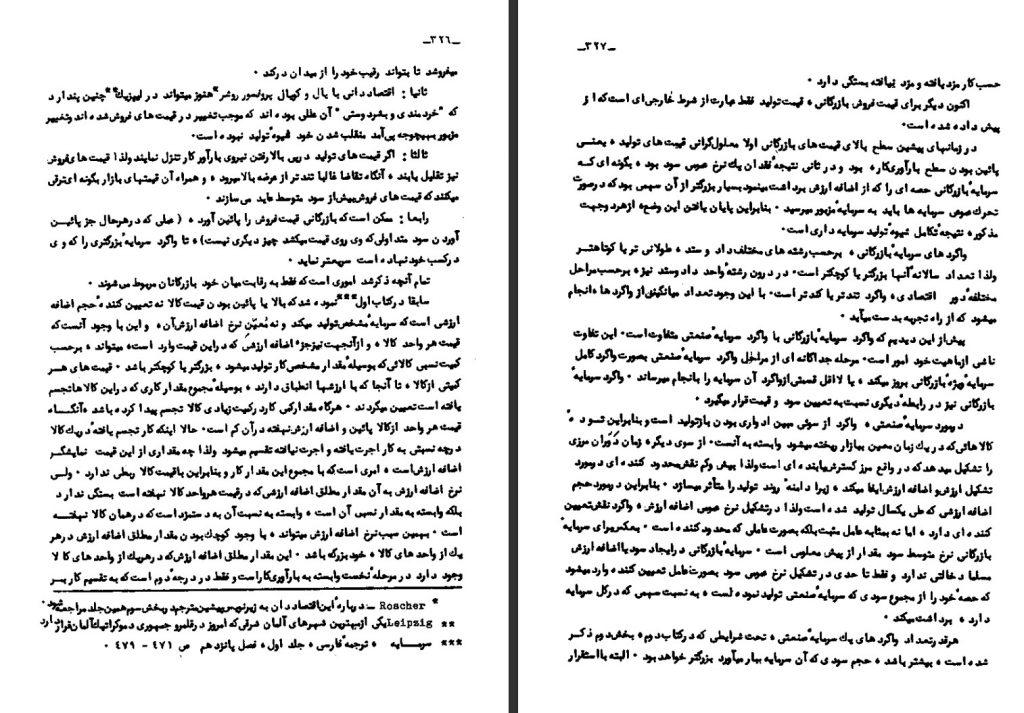 ـ۳۲۶ـ
میفروشد تا بتواند رقیب خود را از میدان درکند ۰
ثانیا : اقتصاددانی با یال و کوپال پروفسور روشر* هنوز میتواند در لیپزیگ** چنین پندارد
که "خردمندی و بشردوستی" آن عللی بوده اند که موجب تغییر در قیمت های فروش شده اند وتغییر
مزبور بهیچوجه پی‌آمد منقلب شدن خود شیوهٔ تولید نبوده است۰
ثالثا : اگر قیمت های تولید در پی بالا رفتن نیروی بارآور کار تنزل نمایند ولذا قیمت های فروش
نیز تقلیل یابند ، آنگاه تقاضا غالبا تندتر از عرضه بالا میرود ، و همراه آن قیمتهای بازار بگونه ای ترقی
میکنند که قیمت های فروش بیش از سود متوسط عاید می سازند ۰
رابعا : ممکن است که بازرگانی قیمت فروش را پائین آورد ، ( عملی که در هر حال جز پائین
آوردن سود متداولی که وی روی قیمت میکشد چیز دیگری نیست) ، تا واگرد سرمایهٔ بزرگتری را که وی
در کسب خود نهاده است سریعتر نماید ۰
تمام آنچه ذکر شد اموری است که فقط به رقابت میان خود بازرگانان مربوط می شوند ۰
سابقا در کتاب اول*** نموده شد که بالا یا پائین بودن قیمت کالا نه تعیین کنندهٔ حجم اضافه
ارزشی است که سرمایهٔ مشخص تولید میکند و نه مُعیّن نرخ اضافه ارزش آن، و این با وجود آنست که
قیمت هر واحد کالا ، و از آنجهت نیز جزء اضافه ارزشی که در این قیمت وارد است، میتواند ، برحسب
کمیت نسبی کالائی که بوسیلهٔ مقدار مشخص کار تولید میشود ، بزرگتر یا کوچکتر باشد ۰ قیمت های هر
کمیتی از کالا ، تا آنجا که با ارزشها انطباق دارند ، بوسیلهٔ مجموع مقدار کاری که در این کالاها تجسم
یافته است تعیین میگردند ۰ هرگاه مقدار کمی کار در کمیت زیادی کالا تجسم پیدا کرده باشد ،آنگاه
قیمت هر واحد از کالا پائین و اضافه ارزش نهفته در آن کم است۰ حالا اینکه کار تجسم یافته در یك کالا
در چه نسبتی به کار اجرت یافته و اجرت نیافته تقسیم میشود ولذا چه مقداری از این قیمت نمایشگر
اضافه ارزش است ، امری است که با مجموع این مقدار کار و بنابراین با قیمت کالا ربطی ندارد ۰ ولی
نرخ اضافه ارزش به آن مقدار مطلق اضافه ارزشی که در قیمت هر واحد کالا نهفته است بستگی ندارد
بلکه وابسته به مقدار نسبی آن است ، وابسته به نسبت آن به دستمزد است که در همان کالا نهفته
است ۰ بهمین سبب نرخ اضافه ارزش میتواند ، با وجود کوچك بودن مقدار مطلق اضافه ارزش در هر
یك از واحد های کالا ، خود بزرگ باشد ۰ این مقدار مطلق اضافه ارزش که در هر یك از واحد های کالا
وجود دارد در مرحلهٔ نخست وابسته به بارآوری کار است و فقط در درجهٔ دوم است که به تقسیم کار بر
* Roscher ــ دربارهٔ این اقتصاددان به زیرنویس پیشین مترجم در بخش سوم همین جلد مراجعه شود۰
** Leipzig یکی از مهمترین شهرهای آلمان شرقی که امروز در قلمرو جمهوری دموکراتیك آلمان قرار دارد
*** سرمایه ، ترجمهٔ فارسی ، جلد اول، فصل پانزدهم ص ۴۷۱ - ۴۷۹ ۰
ـ۳۲۷ـ
حسب کار مزد یافته و مزد نیافته بستگی دارد ۰
اکنون دیگر برای قیمت فروش بازرگانی ، قیمت تولید فقط عبارت از شرط خارجی ای است که از
پیش داده شده است۰
در زمانهای پیشین سطح بالای قیمت های بازرگانی اولا معلول گرانی قیمت های تولید ، یعنی
پائین بودن سطح بارآوری کار، بود و در ثانی نتیجهٔ فقدان یك نرخ عمومی سود بود ، بگونه ای که
سرمایهٔ بازرگانی حصه ای را که از اضافه ارزش برداشت مینمود بسیار بزرگتر از آن سهمی بود که در صورت
تحرك عمومی سرمایه ها باید به سرمایهٔ مزبور میرسید ۰ بنابراین پایان یافتن این وضع، از هر دو جهت
مذکور، نتیجهٔ تکامل شیوهٔ تولید سرمایه داری است۰
واگرد های سرمایهٔ بازرگانی ، برحسب رشته های مختلف داد و ستد ، طولانی تر یا کوتاهتر
ولذا تعداد سالانهٔ آنها بزرگتر یا کوچکتر است۰ در درون رشتهٔ واحد داد وستد نیز، برحسب مراحل
مختلفهٔ دور اقتصادی، واگرد تندتر یا کندتر است۰ با این وجود تعداد میانگینی از واگردها، انجام
میشود که از راه تجربه بدست میآید ۰
پیش از این دیدیم که واگرد سرمایهٔ بازرگانی با واگرد سرمایهٔ صنعتی متفاوت است۰ این تفاوت
ناشی از ماهیت خود امور است۰ مرحلهٔ جداگانه ای از مراحل واگرد سرمایهٔ صنعتی بصورت واگرد کامل
سرمایهٔ ویژهٔ بازرگانی بروز میکند ، یا لااقل قسمتی از واگرد آن سرمایه را بانجام میرساند ۰ واگرد سرمایهٔ
بازرگانی نیز در رابطهٔ دیگری نسبت به تعیین سود و قیمت قرار میگیرد ۰
در مورد سرمایهٔ صنعتی ، واگرد از سوئی مبین ادواری بودن بازتولید است و بنابراین تودهٔ
کالاهائی که در یك زمان معین ببازار ریخته میشود وابسته به آنست۰ از سوی دیگر، زمان دَوَران مرزی
را تشکیل میدهد که در واقع مرز گسترش یابنده ای است ولذا بیش وکم نقش محدود کننده ای در مورد
تشکیل ارزش و اضافه ارزش ایفا میکند ، زیرا دامنهٔ روند تولید را متأثر میسازد ۰ بنابراین در مورد حجم
اضافه ارزشی که طی یکسال تولید شده است ولذا در تشکیل نرخ عمومی اضافه ارزش ، واگرد نقش تعیین
کننده ای دارد ، اما نه بمثابه عامل مثبت بلکه بصورت عاملی که محدود کننده است ۰ بعکس برای سرمایهٔ
بازرگانی نرخ متوسط سود مقدار از پیش معلومی است ۰ سرمایهٔ بازرگانی در ایجاد سود یا اضافه ارزش
مسلما دخالتی ندارد و فقط تا حدی در تشکیل نرخ عمومی سود بصورت عامل تعیین کننده ، وارد میشود
که حصهٔ خود را از مجموع سودی که سرمایهٔ صنعتی تولید نموده است ، به نسبت سهمی که در کل سرمایه
دارد ، برداشت میکند ۰
هر قدر تعداد واگرد های یك سرمایهٔ صنعتی ، تحت شرایطی که در کتاب دوم ، بخش دوم ذکر
شده است ، بیشتر باشد ، حجم سودی که آن سرمایه ببار میآورد بزرگتر خواهد بود ۰ البته با استقرار